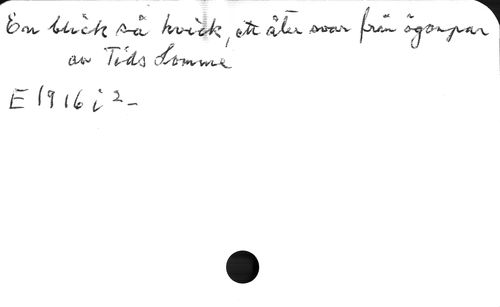 En blick så kvick, ett åter svar från ögonpar
av Tids Lomme
E 1916 i 2-